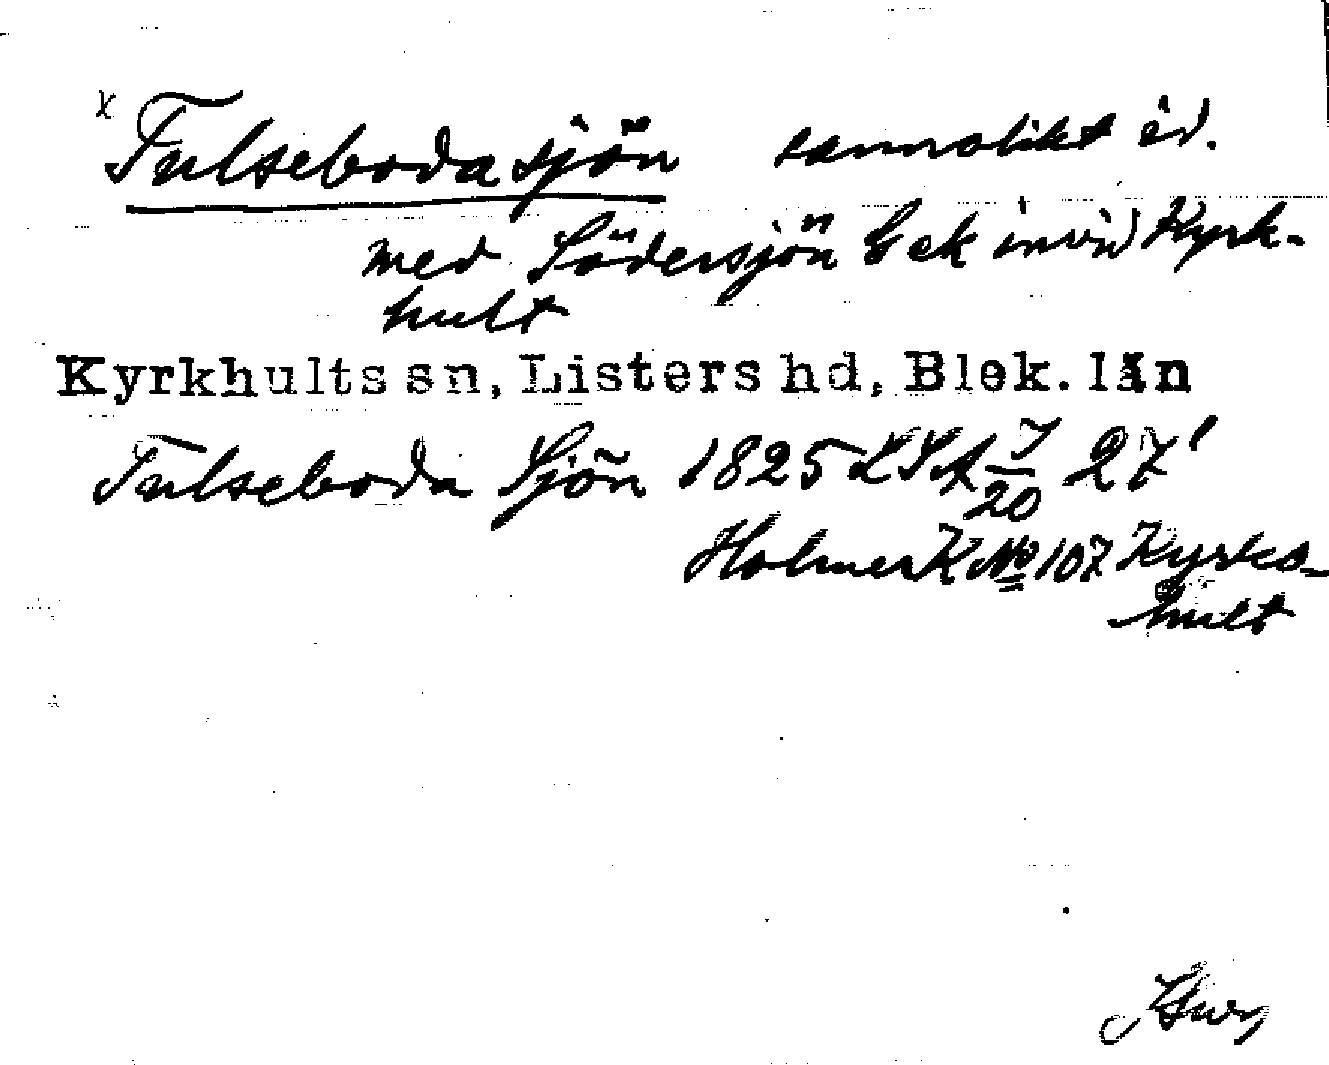 x Fulsebodasjön sannolikt id.
med Södersjön G ek invid Kyrk-
hult
Kyrkhults sn, Listers hd, Blek. län
Fulseboda Sjön 1825 LSA J/20 27'
Holmer K No 107 Kyrko-
hult